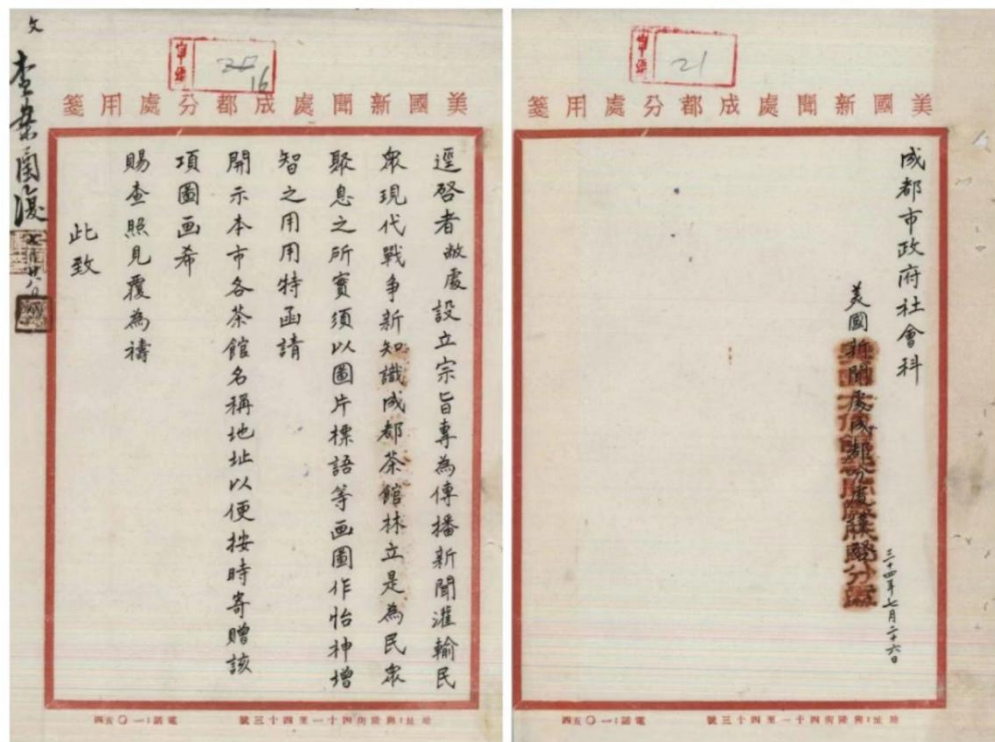 美國新聞處成都分處用箋
16
逕啓者敝處設立宗旨專為傳播新聞灌輸民
衆現代戰爭新知識成都茶館林立是為民衆
聚息之所實須以圖片標語等画圖作怡神增
智之用用特函請
開示本市各茶館名稱地址以便按時寄贈該
項圖画希
賜查照見覆為禱
此致
查案函復
地址：興隆街四十一至四十三號 電話：一〇五四
美國新聞處成都分處用箋
21
成都市政府社會科
美國新聞處成都分處謹啓
三十四年七月二十六日
地址：興隆街四十一至四十三號 電話：一〇五四